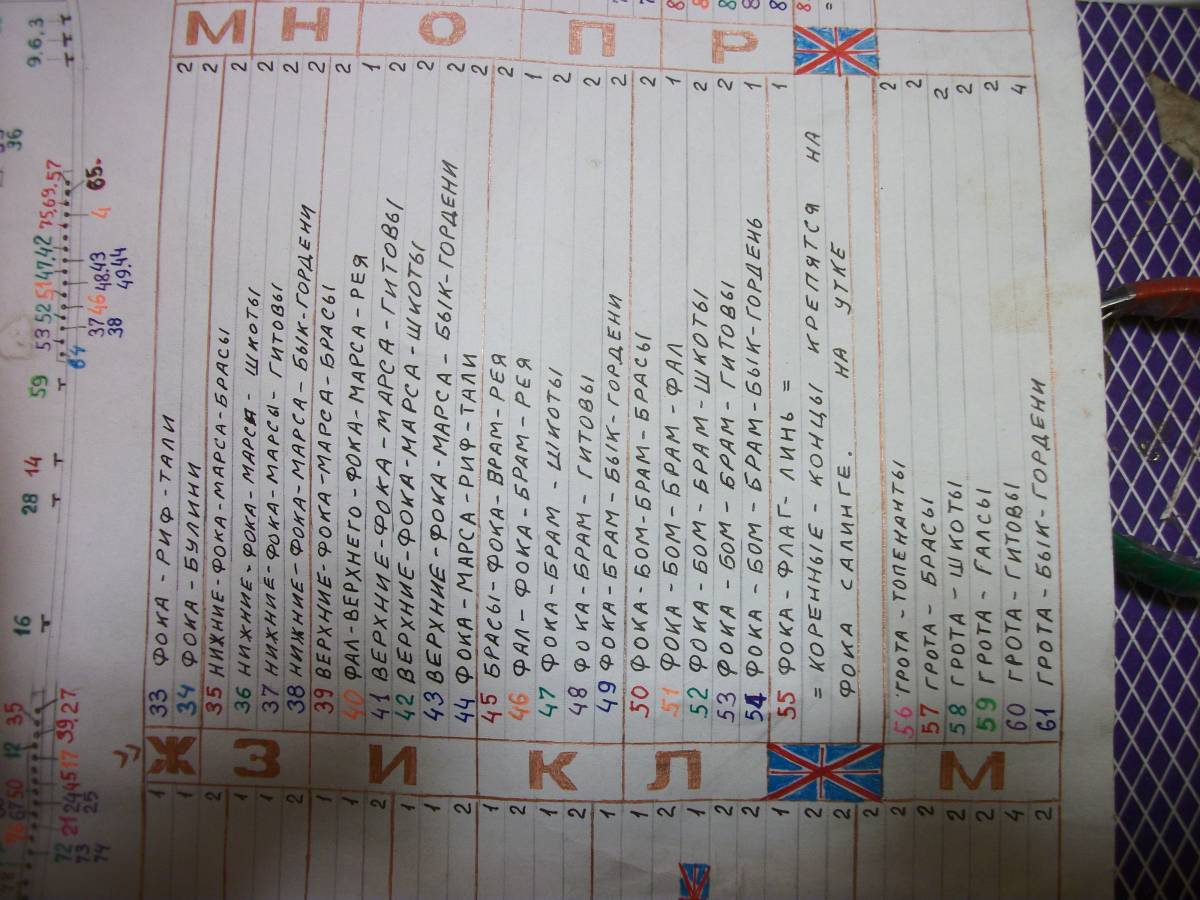 67 50 12 35 16 28 14 59 53 52 51 47,42 75,69.57 36 9.6.3
т т т т т т т
72 21 24 45 17 39,27 64 37 46 48.43 4 65.
73 25 38 49.44
74
Ж З И К Л М
33 ФОКА - РИФ - ТАЛИ 2
34 ФОКА - БУЛИНИ 2
35 НИЖНИЕ - ФОКА - МАРСА - БРАСЫ 2
36 НИЖНИЕ - ФОКА - МАРСА - ШКОТЫ 2
37 НИЖНИЕ - ФОКА - МАРСЫ - ГИТОВЫ 2
38 НИЖНИЕ - ФОКА - МАРСА - БЫК - ГОРДЕНИ 2
39 ВЕРХНИЕ - ФОКА - МАРСА - БРАСЫ 2
40 ФАЛ - ВЕРХНЕГО - ФОКА - МАРСА - РЕЯ 1
41 ВЕРХНИЕ - ФОКА - МАРСА - ГИТОВЫ 2
42 ВЕРХНИЕ - ФОКА - МАРСА - ШКОТЫ 2
43 ВЕРХНИЕ - ФОКА - МАРСА - БЫК - ГОРДЕНИ 2
44 ФОКА - МАРСА - РИФ - ТАЛИ 2
45 БРАСЫ - ФОКА - БРАМ - РЕЯ 2
46 ФАЛ - ФОКА - БРАМ - РЕЯ 1
47 ФОКА - БРАМ - ШКОТЫ 2
48 ФОКА - БРАМ - ГИТОВЫ 2
49 ФОКА - БРАМ - БЫК - ГОРДЕНИ 2
50 ФОКА - БОМ - БРАМ - БРАСЫ 2
51 ФОКА - БОМ - БРАМ - ФАЛ 1
52 ФОКА - БОМ - БРАМ - ШКОТЫ 2
53 ФОКА - БОМ - БРАМ - ГИТОВЫ 2
54 ФОКА - БОМ - БРАМ - БЫК - ГОРДЕНЬ 1
55 ФОКА - ФЛАГ - ЛИНЬ = 1
= КОРЕННЫЕ - КОНЦЫ КРЕПЯТСЯ НА
ФОКА САЛИНГЕ. НА УТКЕ
56 ГРОТА - ТОПЕНАНТЫ 2
57 ГРОТА - БРАСЫ 2
58 ГРОТА - ШКОТЫ 2
59 ГРОТА - ГАЛСЫ 2
60 ГРОТА - ГИТОВЫ 2
61 ГРОТА - БЫК - ГОРДЕНИ 4
М Н О П Р